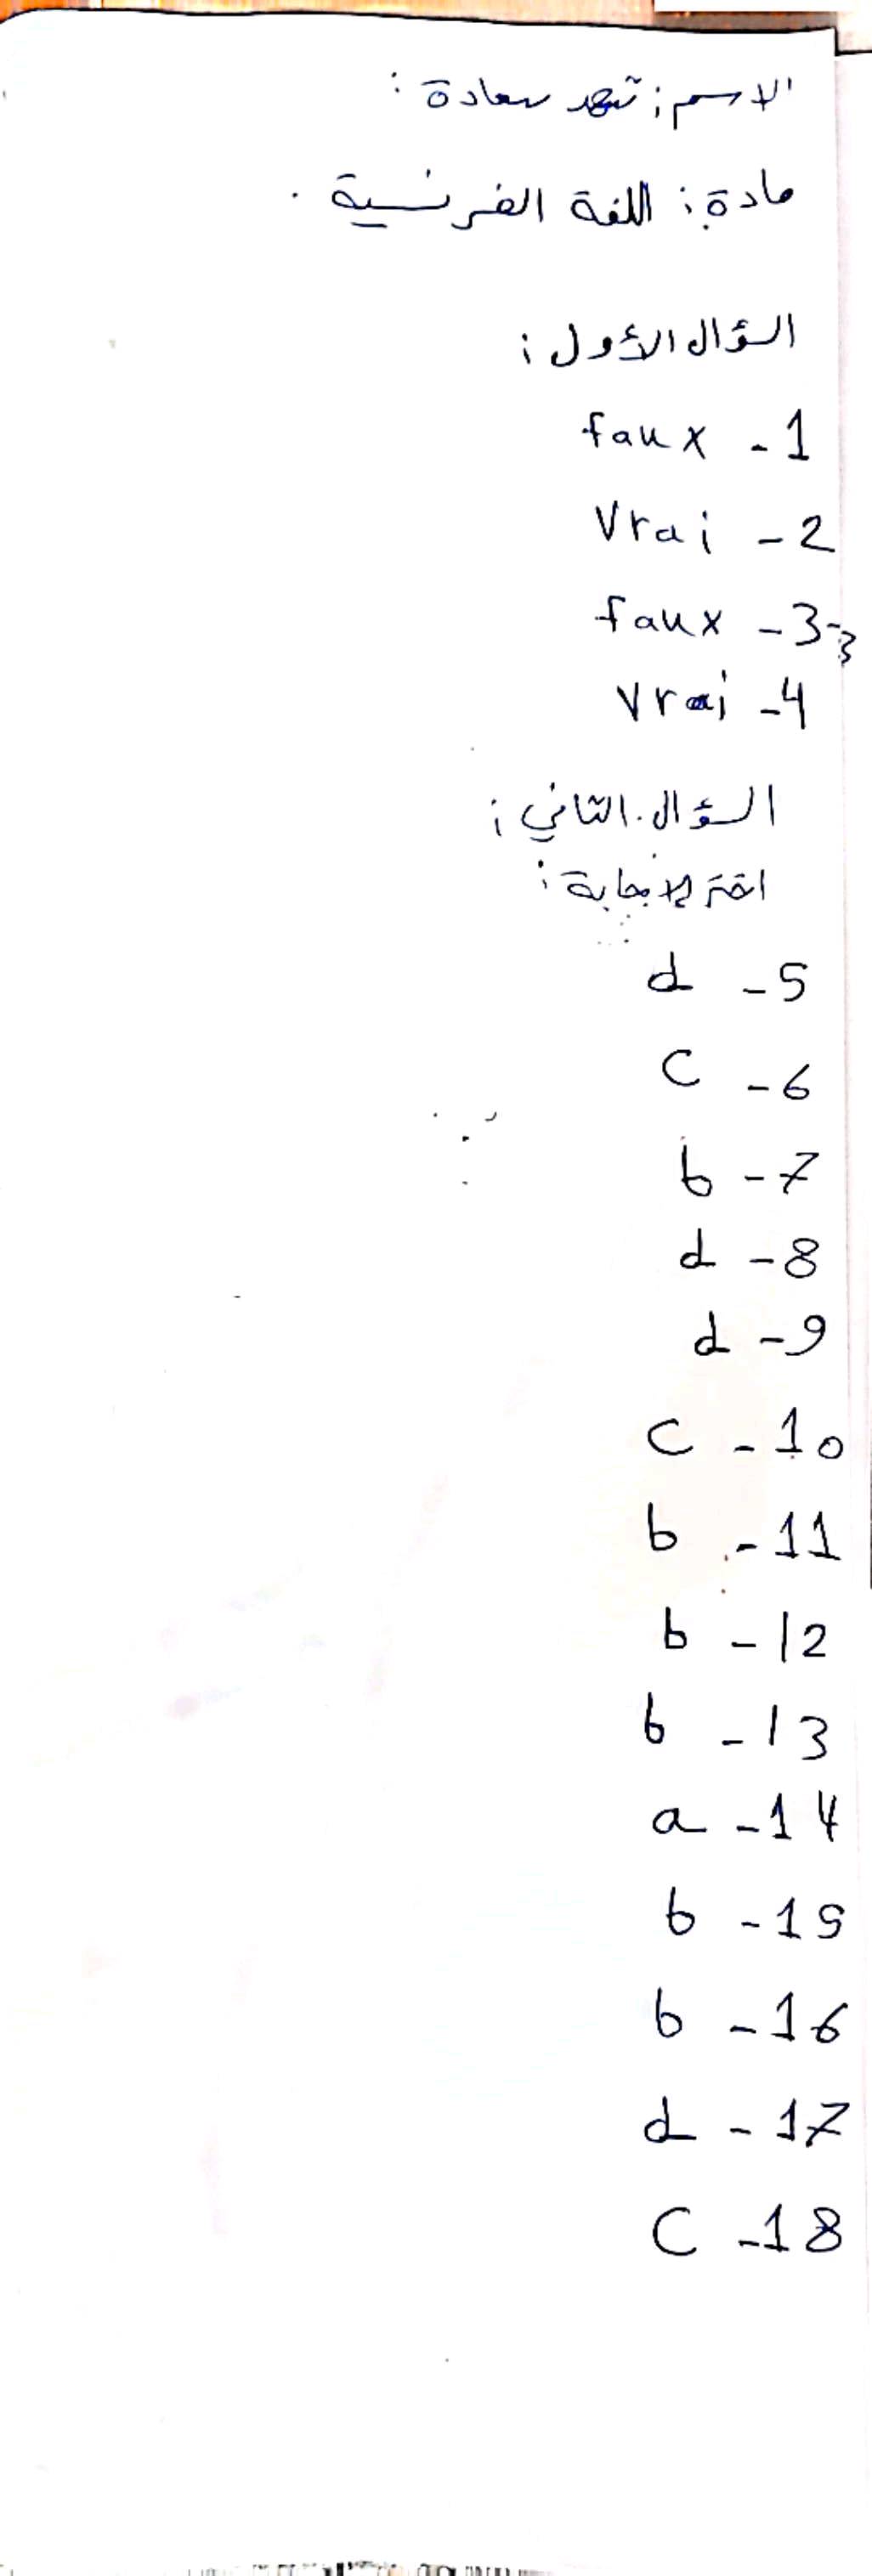 الاسم: شهد سعادة:
مادة: اللغة الفرنسية.
السؤال الأول:
1- faux
2- Vrai
3- faux
4- Vrai
السؤال الثاني:
اختر الإجابة:
5- d
6- c
7- b
8- d
9- d
10- c
11- b
12- b
13- b
14- a
15- b
16- b
17- d
18- C